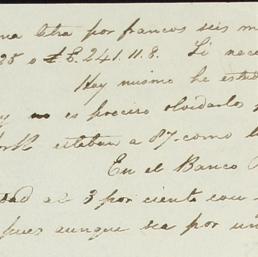 una letra por francos seis m
25 o £E. 241.11.8. Si nece
Hoy mismo he est
no es preciso olvidarlo
estaban a 87. como
En el Banco
dad al 3 por ciento con
pues aunque sea por un